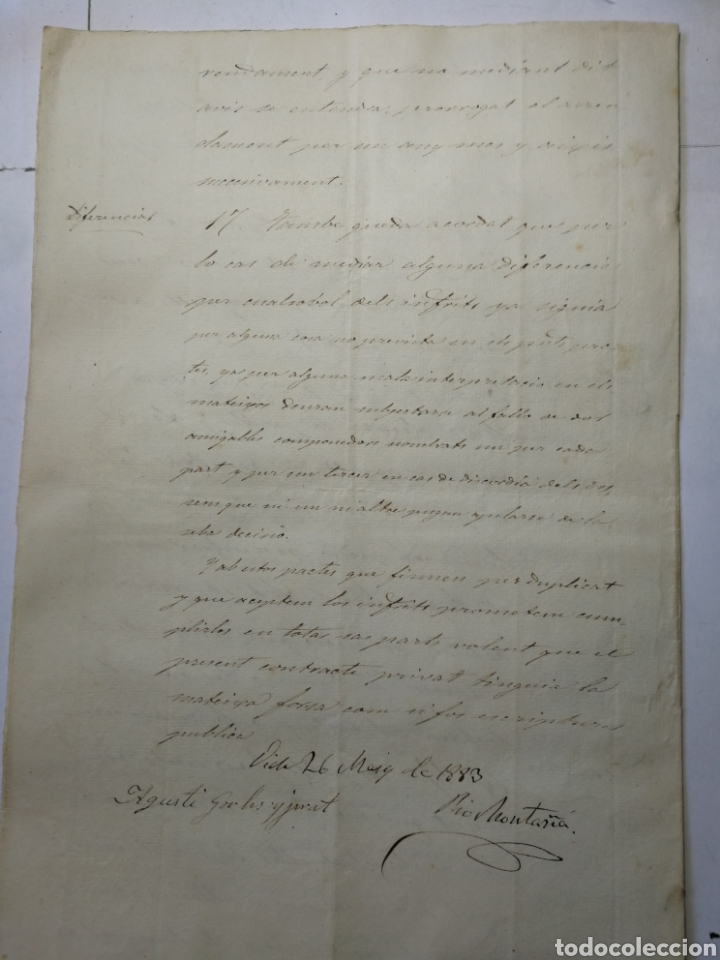 rendament y que no mediant dit
avis se entendrá prorrogat el arren
dament per un any mes y aixis
successivament.
Diferencias
17. Tambe queda acordat que per
lo cas de mediar alguna diferencia
per cualsobol dels infrits ya siguia
per alguna cosa no prevista en els pnts pac-
tes, ya per alguna mala interpretacio en els
mateixos deuran subjectarse al fallo de dos
amigables componedors nombrats un per cada
part y per un tercer en cas de discordia dels dos,
sens que ni un ni altre pugan apelarse de la
seba decisió.
Y ab estos pactes que firmen per duplicat
y que aceptem los infrits prometem cum
plirlos en totas sas parts volent que el
present contracte privat tinguia la
mateixa forsa com si fos escriptura
publica
Vich 26 Maig de 1883
Agustí y prat
Pio Montañá.
todocoleccion